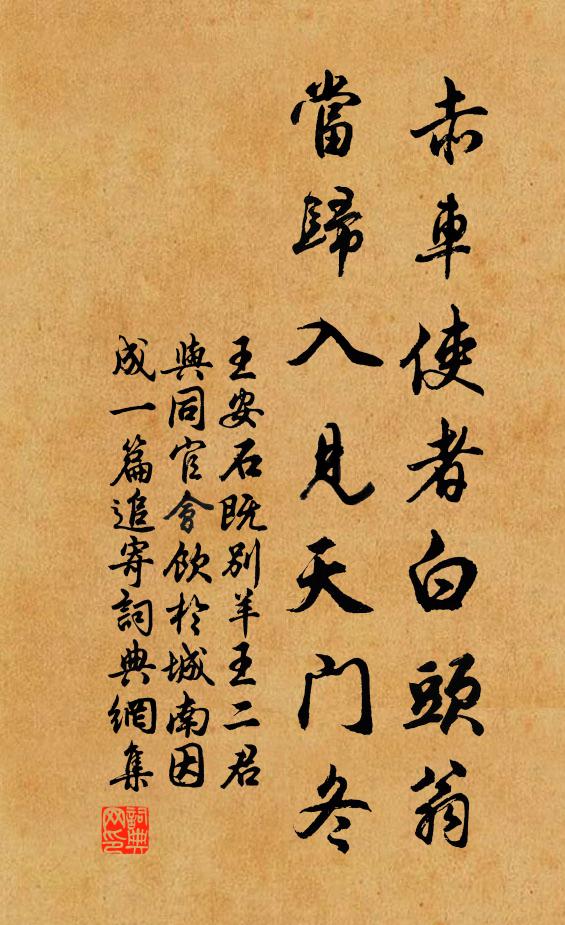 赤車使者白頭翁
當歸入見天門冬
王安石既別羊王二君
與同官會飲於城南因
成一篇追寄詞典網集
詞典网印